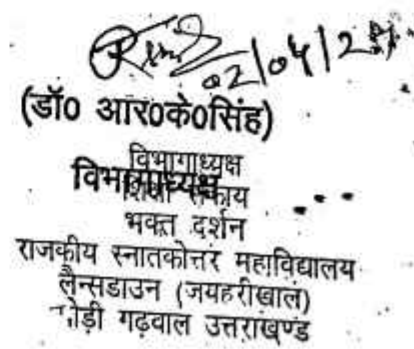 02/04/2
(डॉ0 आर0के0सिंह)
विभागाध्यक्ष
विभागाध्यक्ष
शिक्षा संकाय
भक्त दर्शन
राजकीय स्नातकोत्तर महाविद्यालय
लैन्सडाउन (जयहरीखाल)
गढ़वाल उत्तराखण्ड